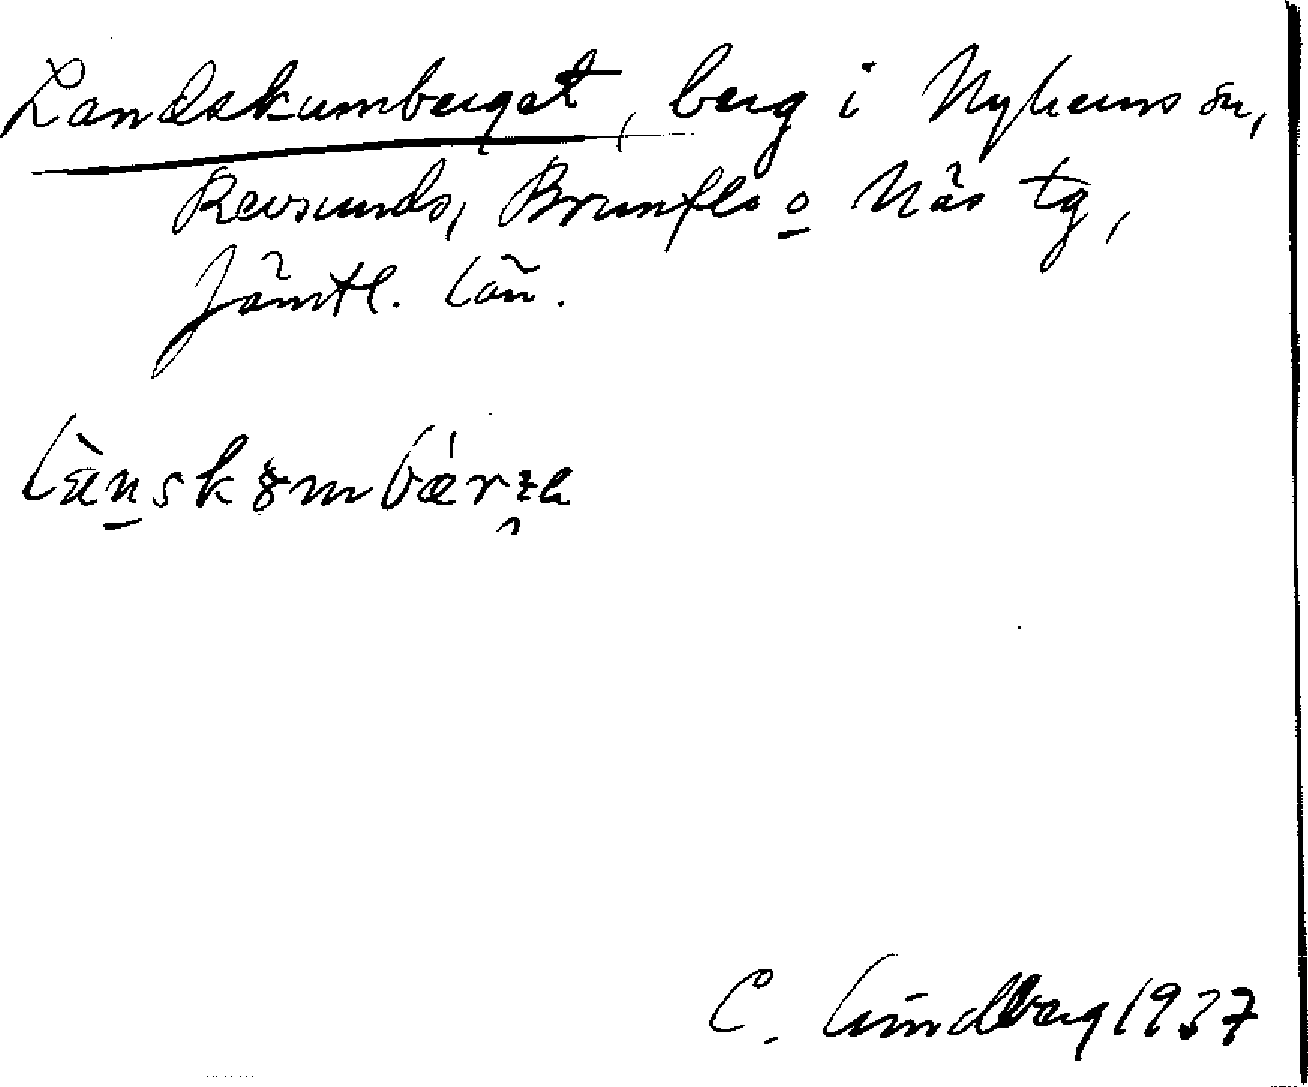 Landskumberget, berg i Nyhems sn,
Revsunds, Brunflo o Näs tg,
Jämtl. län.
lànskômbǽrʒa
C. Lindberg 1937